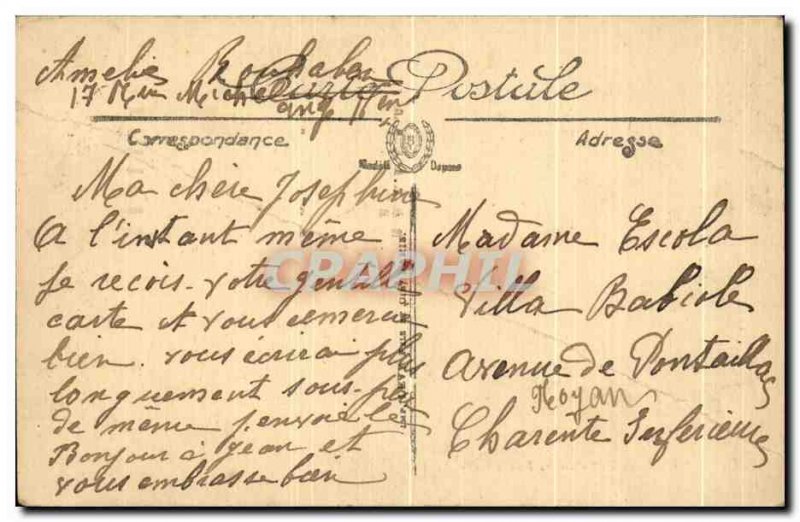 Amelie
17 Rue Michel Postale
ang
Correspondance
Adresse
Modèle Déposé
Ma chère Josephine
A l'instant même
Je recois votre gentille
carte et vous remercie
bien. vous écrirai plus
longuement sous-peu
de même j'envoie le
Bonjour à Jean et
vous embrasse bien
Madame Escola
Villa Babiole
Avenue de Pontaillac
Royan
Charente Inferieure
CPAPHIL